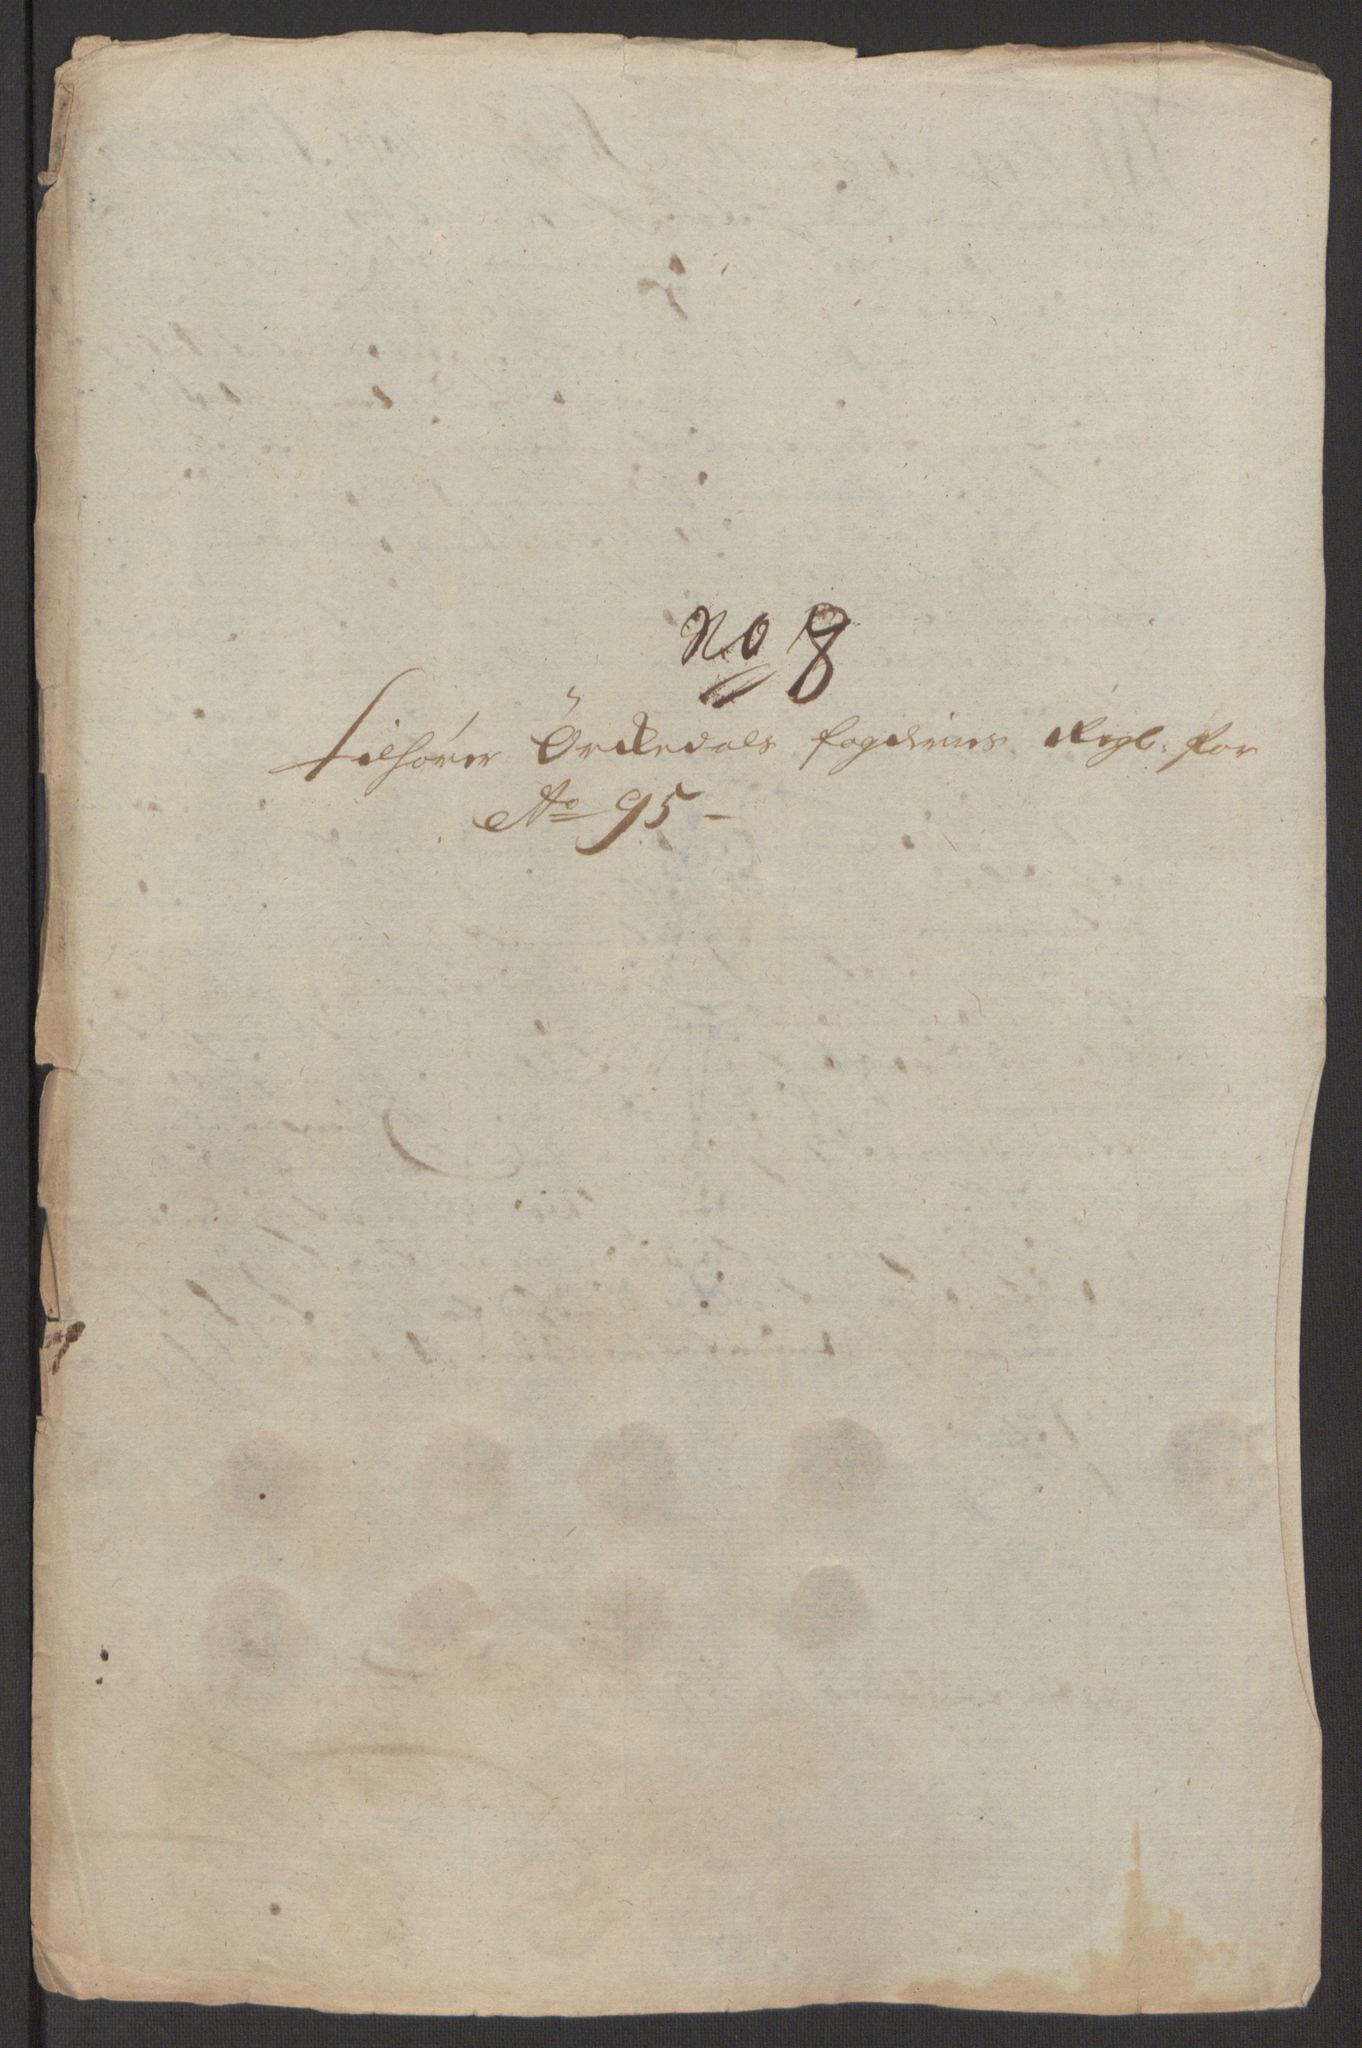 No 8
Tilhører Örckedals fogderies Regb. for
Ao 95 -